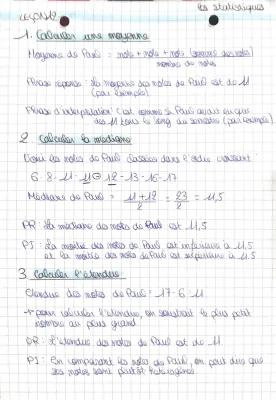 les statistiques
1. Calculer une moyenne
Moyenne de Paul = note + note + note (somme des notes)
nombre de notes
Phrase réponse : La moyenne des notes de Paul est de 11
(par exemple)
Phrase d'interprétation : c'est comme si Paul avait eu que
des 11 tous le long du semestre (par exemple)
2 Calculer la médiane
Voici les notes de Paul classées dans l'ordre croissant :
6-8-11-11-12-13-16-17
Médiane de Paul = 11+12 = 23 = 11,5
2 2
PR : La médiane des notes de Paul est 11,5
PI : La moitié des notes de Paul est inférieure à 11,5
et la moitié des notes de Paul est supérieure à 11,5
3 Calculer l'étendue
Etendue des notes de Paul = 17-6 = 11
→ pour calculer l'étendue, on soustrait le plus petit
nombre au plus grand
PR : L'étendue des notes de Paul est de 11
PI : En comparant les notes de Paul, on peut dire que
ses notes sont plutôt hétérogènes